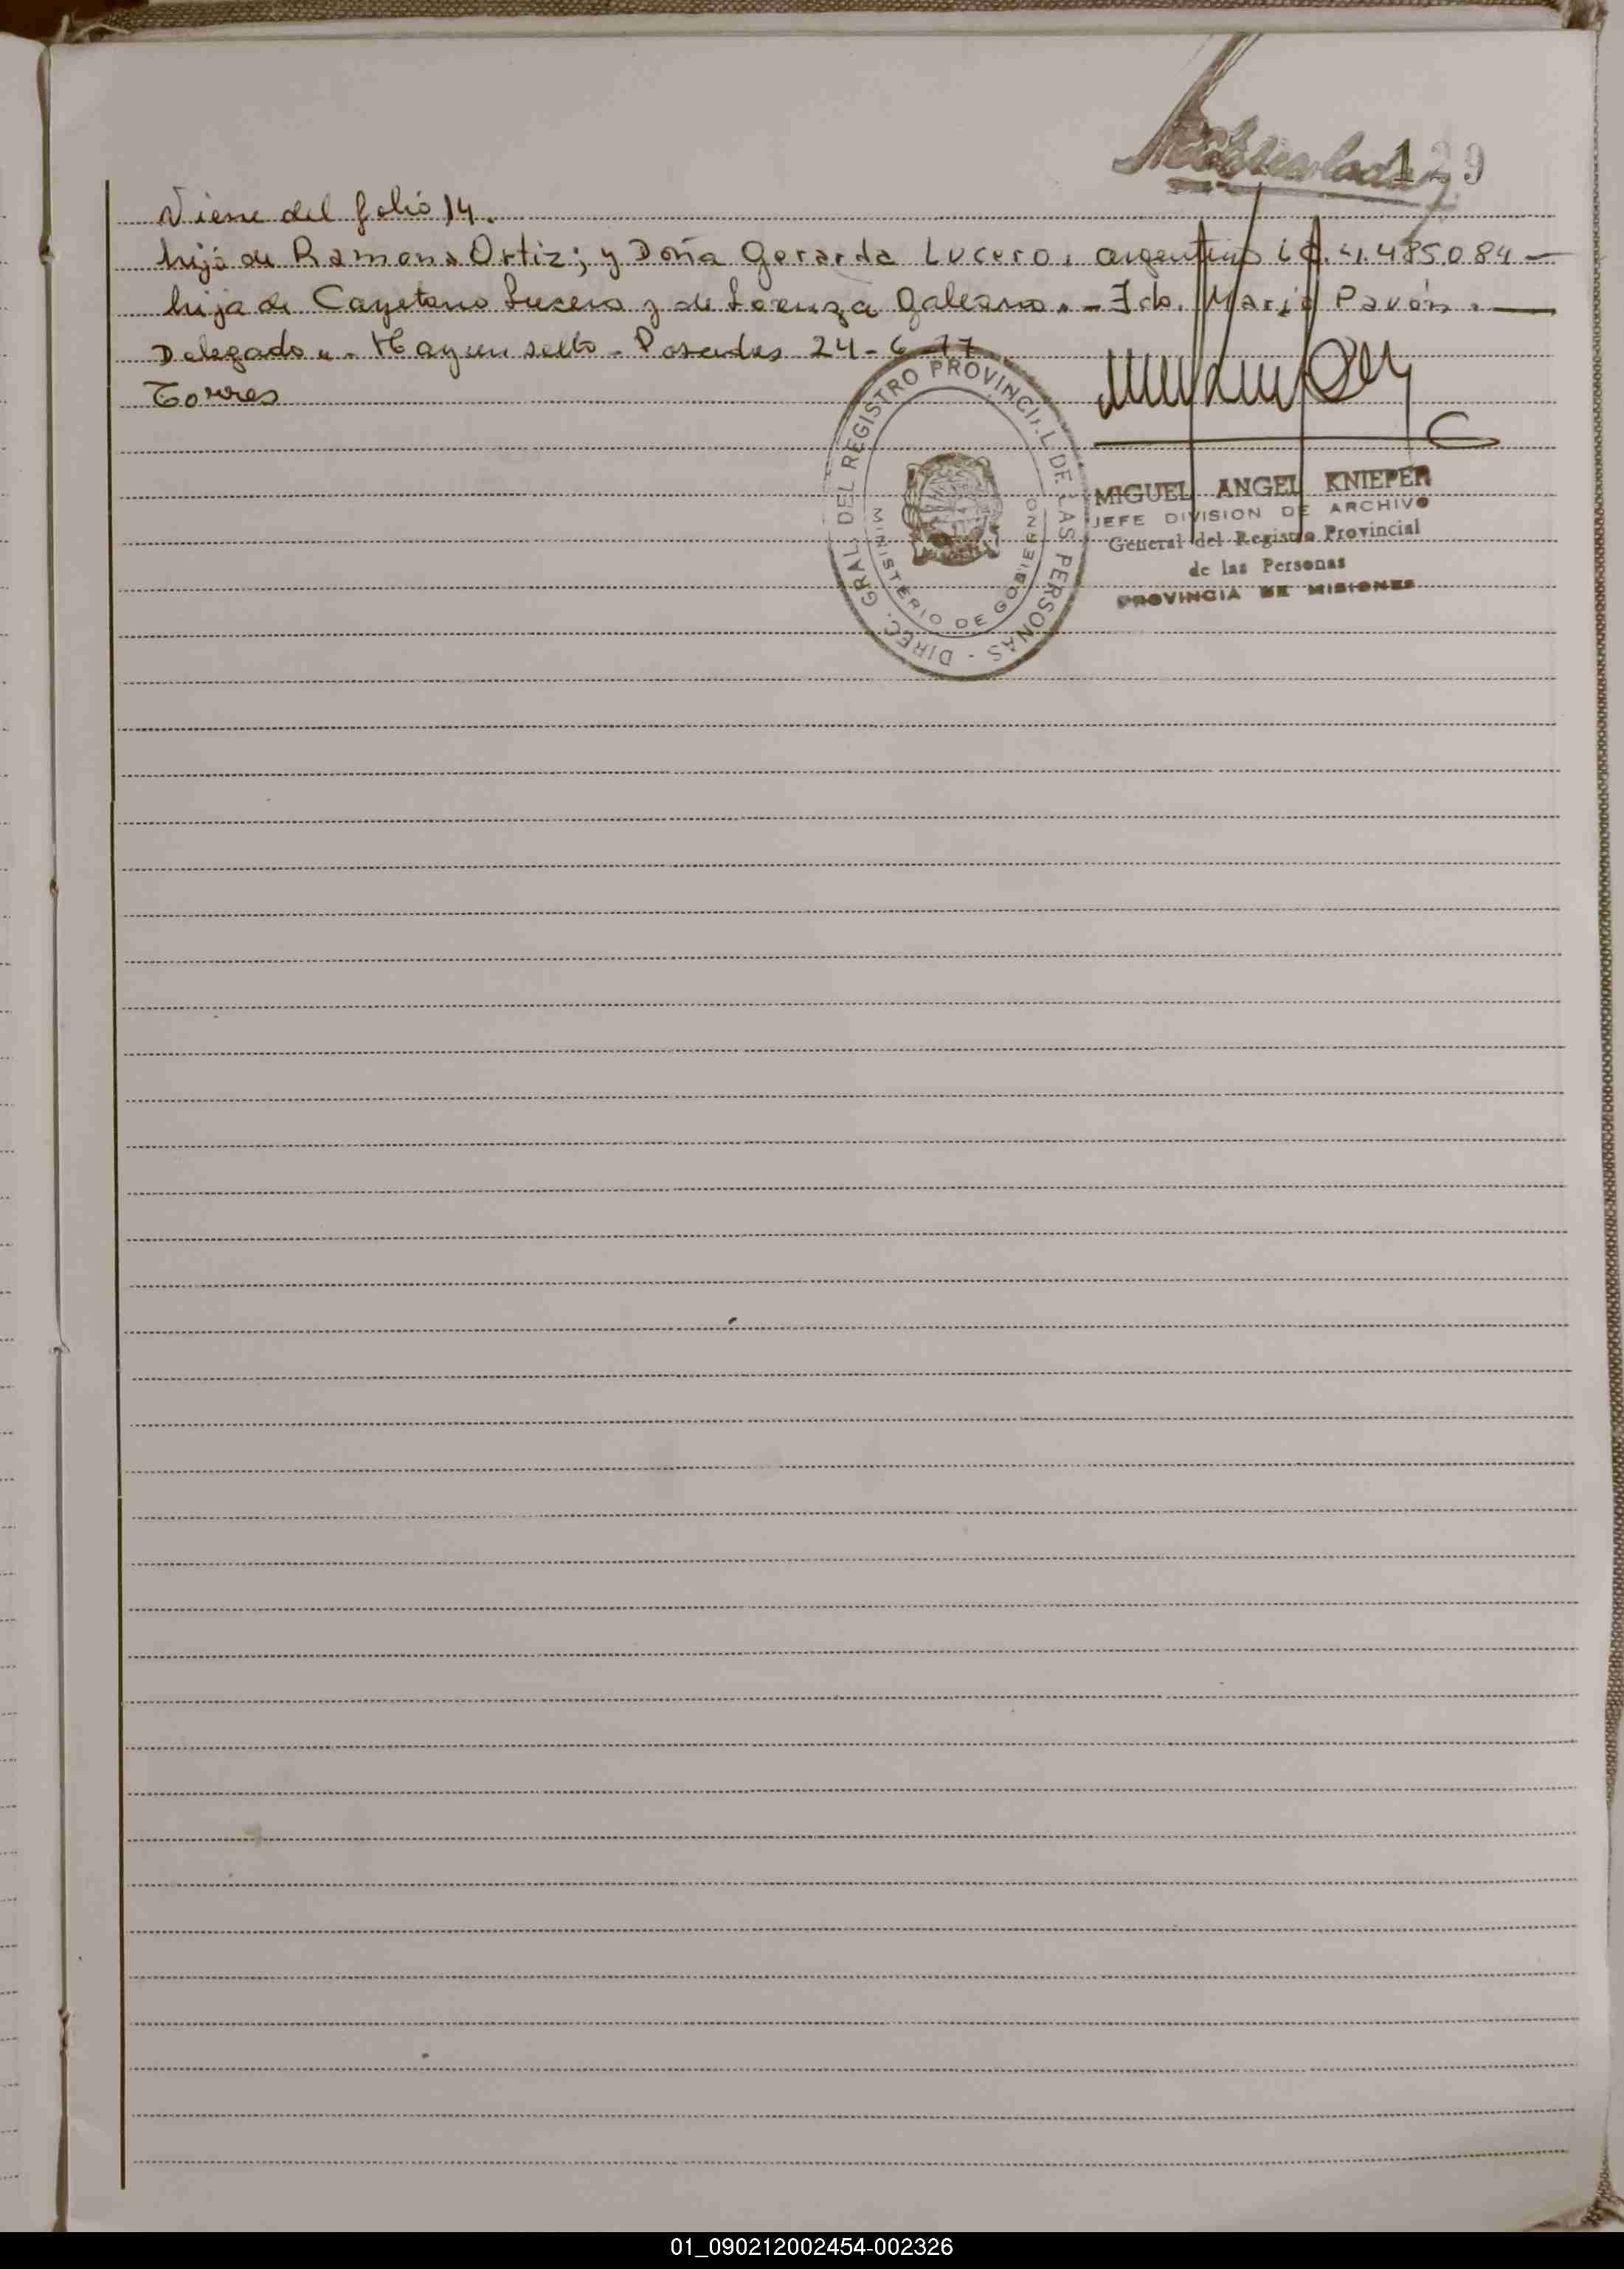 129
Viene del folio 14.
hijo de Ramona Ortiz; y Doña Gerarda Lucero, argentina L C. 4.485.084 —
hija de Cayetano Lucero y de Lorenza Galeano. - Fdo. Mario Pavón. —
Delegado. - Hay un sello - Posadas 24-6-77
Torres
DIREC. GRAL. DEL REGISTRO PROVINCIAL DE LAS PERSONAS -
MINISTERIO DE GOBIERNO
MIGUEL ANGEL KNIEPER
JEFE DIVISION DE ARCHIVO
General del Registro Provincial
de las Personas
PROVINCIA DE MISIONES
01_090212002454-002326